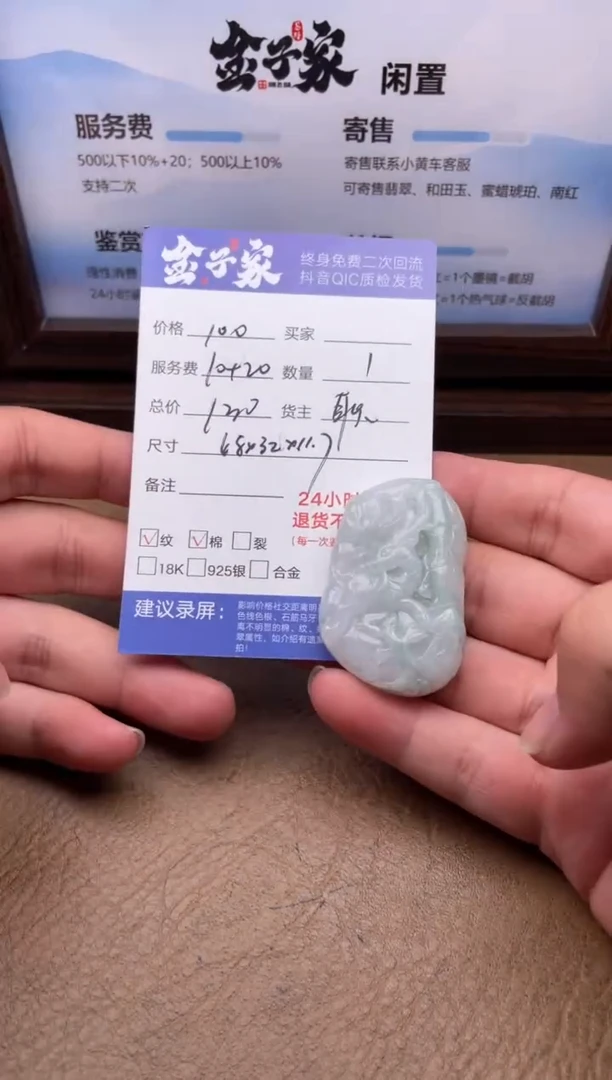 金子家 闲置
服务费
500以下10%+20；500以上10%
支持二次
寄售
寄售联系小黄车客服
可寄售翡翠、和田玉、蜜蜡琥珀、南红
鉴赏
24小时
=1个墨镜=截胡
=1个热气球=反截胡
金子家
终身免费二次回流
抖音QIC质检发货
价格 100 买家
服务费 10+20 数量 1
总价 130 货主
尺寸 48x32x11.7
备注
24小时
退货不
(每一次
√纹 √棉 □裂
□18K □925银 □合金
建议录屏：
影响价格社交距离明
色线色根、石筋马牙
离不明显的棉、纹、
翠属性，如介绍有遗
拍！